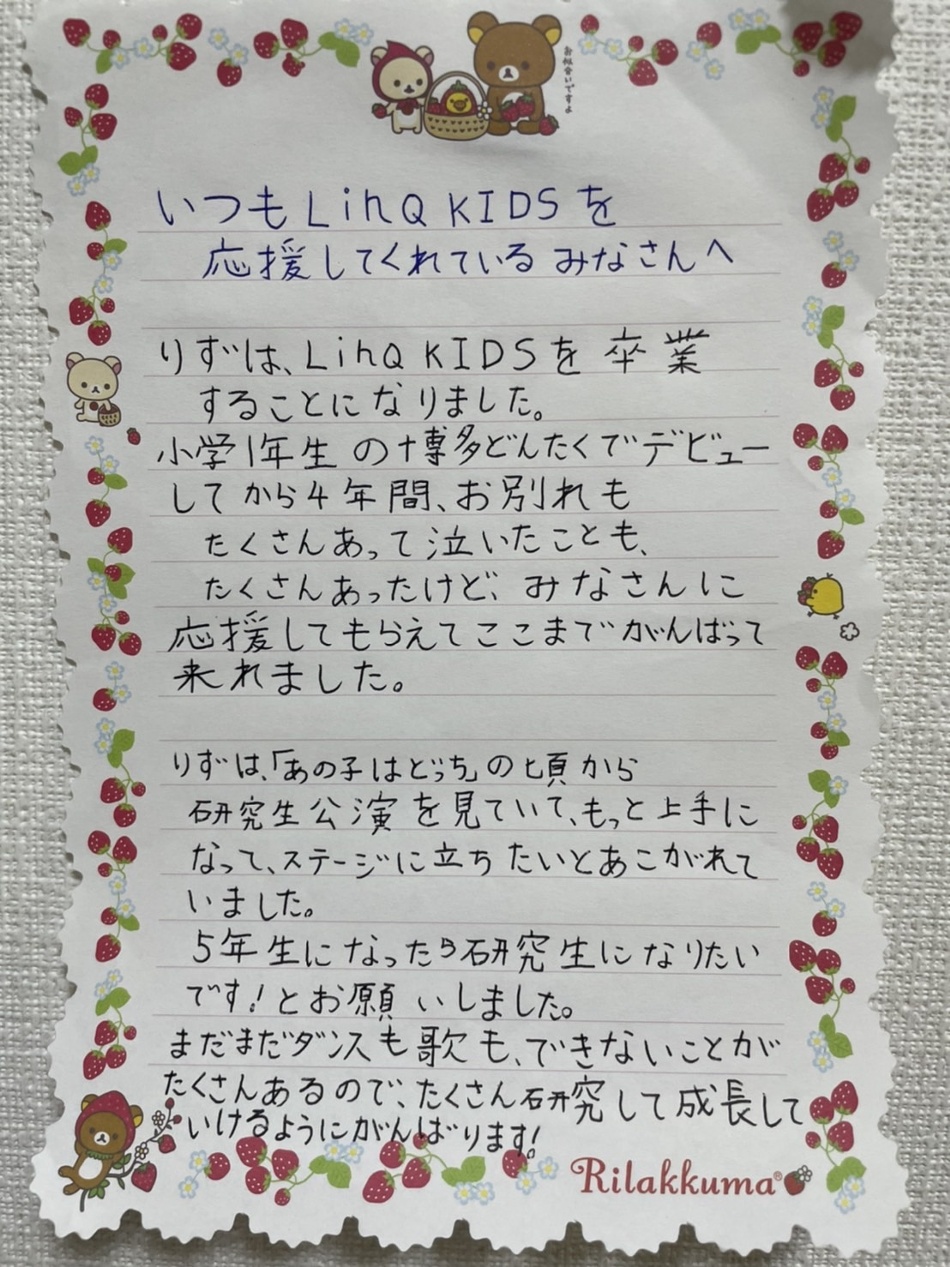 お似合いですよ
いつもLinQ KIDSを
応援してくれているみなさんへ
りずは、LinQ KIDSを卒業
することになりました。
小学1年生の博多どんたくでデビュー
してから4年間、お別れも
たくさんあって泣いたことも、
たくさんあったけど、みなさんに
応援してもらえてここまでがんばって
来れました。
りずは、「あの子はどっち」の頃から
研究生公演を見ていて、もっと上手に
なって、ステージに立ちたいとあこがれて
いました。
5年生になったら研究生になりたい
です!とお願いしました。
まだまだダンスも歌も、できないことが
たくさんあるので、たくさん研究して成長して
いけるようにがんばります!
Rilakkuma®